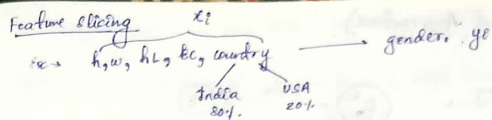 Feature Slicing
xi
ex → h, w, hL, ec, country → gender. ye
India USA
80% 20%